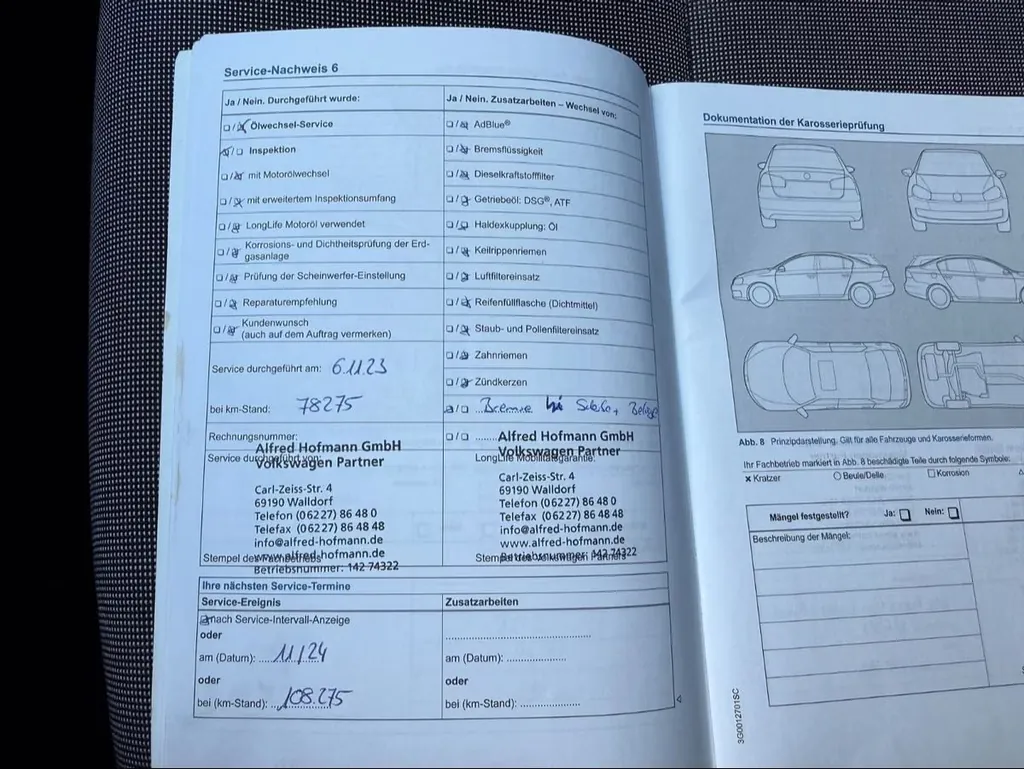 Service-Nachweis 6
Ja / Nein. Durchgeführt wurde:
Ölwechsel-Service
Inspektion
mit Motorölwechsel
mit erweitertem Inspektionsumfang
LongLife Motoröl verwendet
Korrosions- und Dichtheitsprüfung der Erd-
gasanlage
Prüfung der Scheinwerfer-Einstellung
Reparaturempfehlung
Kundenwunsch
(auch auf dem Auftrag vermerken)
Service durchgeführt am: 6.11.23
bei km-Stand: 78275
Rechnungsnummer:
Service durchgeführt von:
Alfred Hofmann GmbH
Volkswagen Partner
Carl-Zeiss-Str. 4
69190 Walldorf
Telefon (0 62 27) 86 48 0
Telefax (0 62 27) 86 48 48
info@alfred-hofmann.de
www.alfred-hofmann.de
Betriebsnummer: 142 74322
Stempel des Fachbetriebs
Ja / Nein. Zusatzarbeiten – Wechsel von:
AdBlue®
Bremsflüssigkeit
Dieselkraftstofffilter
Getriebeöl: DSG®, ATF
Haldexkupplung: Öl
Keilrippenriemen
Luftfiltereinsatz
Reifenfüllflasche (Dichtmittel)
Staub- und Pollenfiltereinsatz
Zahnriemen
Zündkerzen
Bremse hi
LongLife Mobilitätsgarantie:
Alfred Hofmann GmbH
Volkswagen Partner
Carl-Zeiss-Str. 4
69190 Walldorf
Telefon (0 62 27) 86 48 0
Telefax (0 62 27) 86 48 48
info@alfred-hofmann.de
www.alfred-hofmann.de
Betriebsnummer: 142 74322
Stempel des Volkswagen Partners
Ihre nächsten Service-Termine
Service-Ereignis
nach Service-Intervall-Anzeige
oder
am (Datum): 11/24
oder
bei (km-Stand): 108.275
Zusatzarbeiten
am (Datum):
oder
bei (km-Stand):
Dokumentation der Karosserieprüfung
Abb. 8 Prinzipdarstellung. Gilt für alle Fahrzeuge und Karosserieformen.
Ihr Fachbetrieb markiert in Abb. 8 beschädigte Teile durch folgende Symbole:
Kratzer
Beule/Delle
Korrosion
Mängel festgestellt? Ja: Nein:
Beschreibung der Mängel:
3G0012701SC